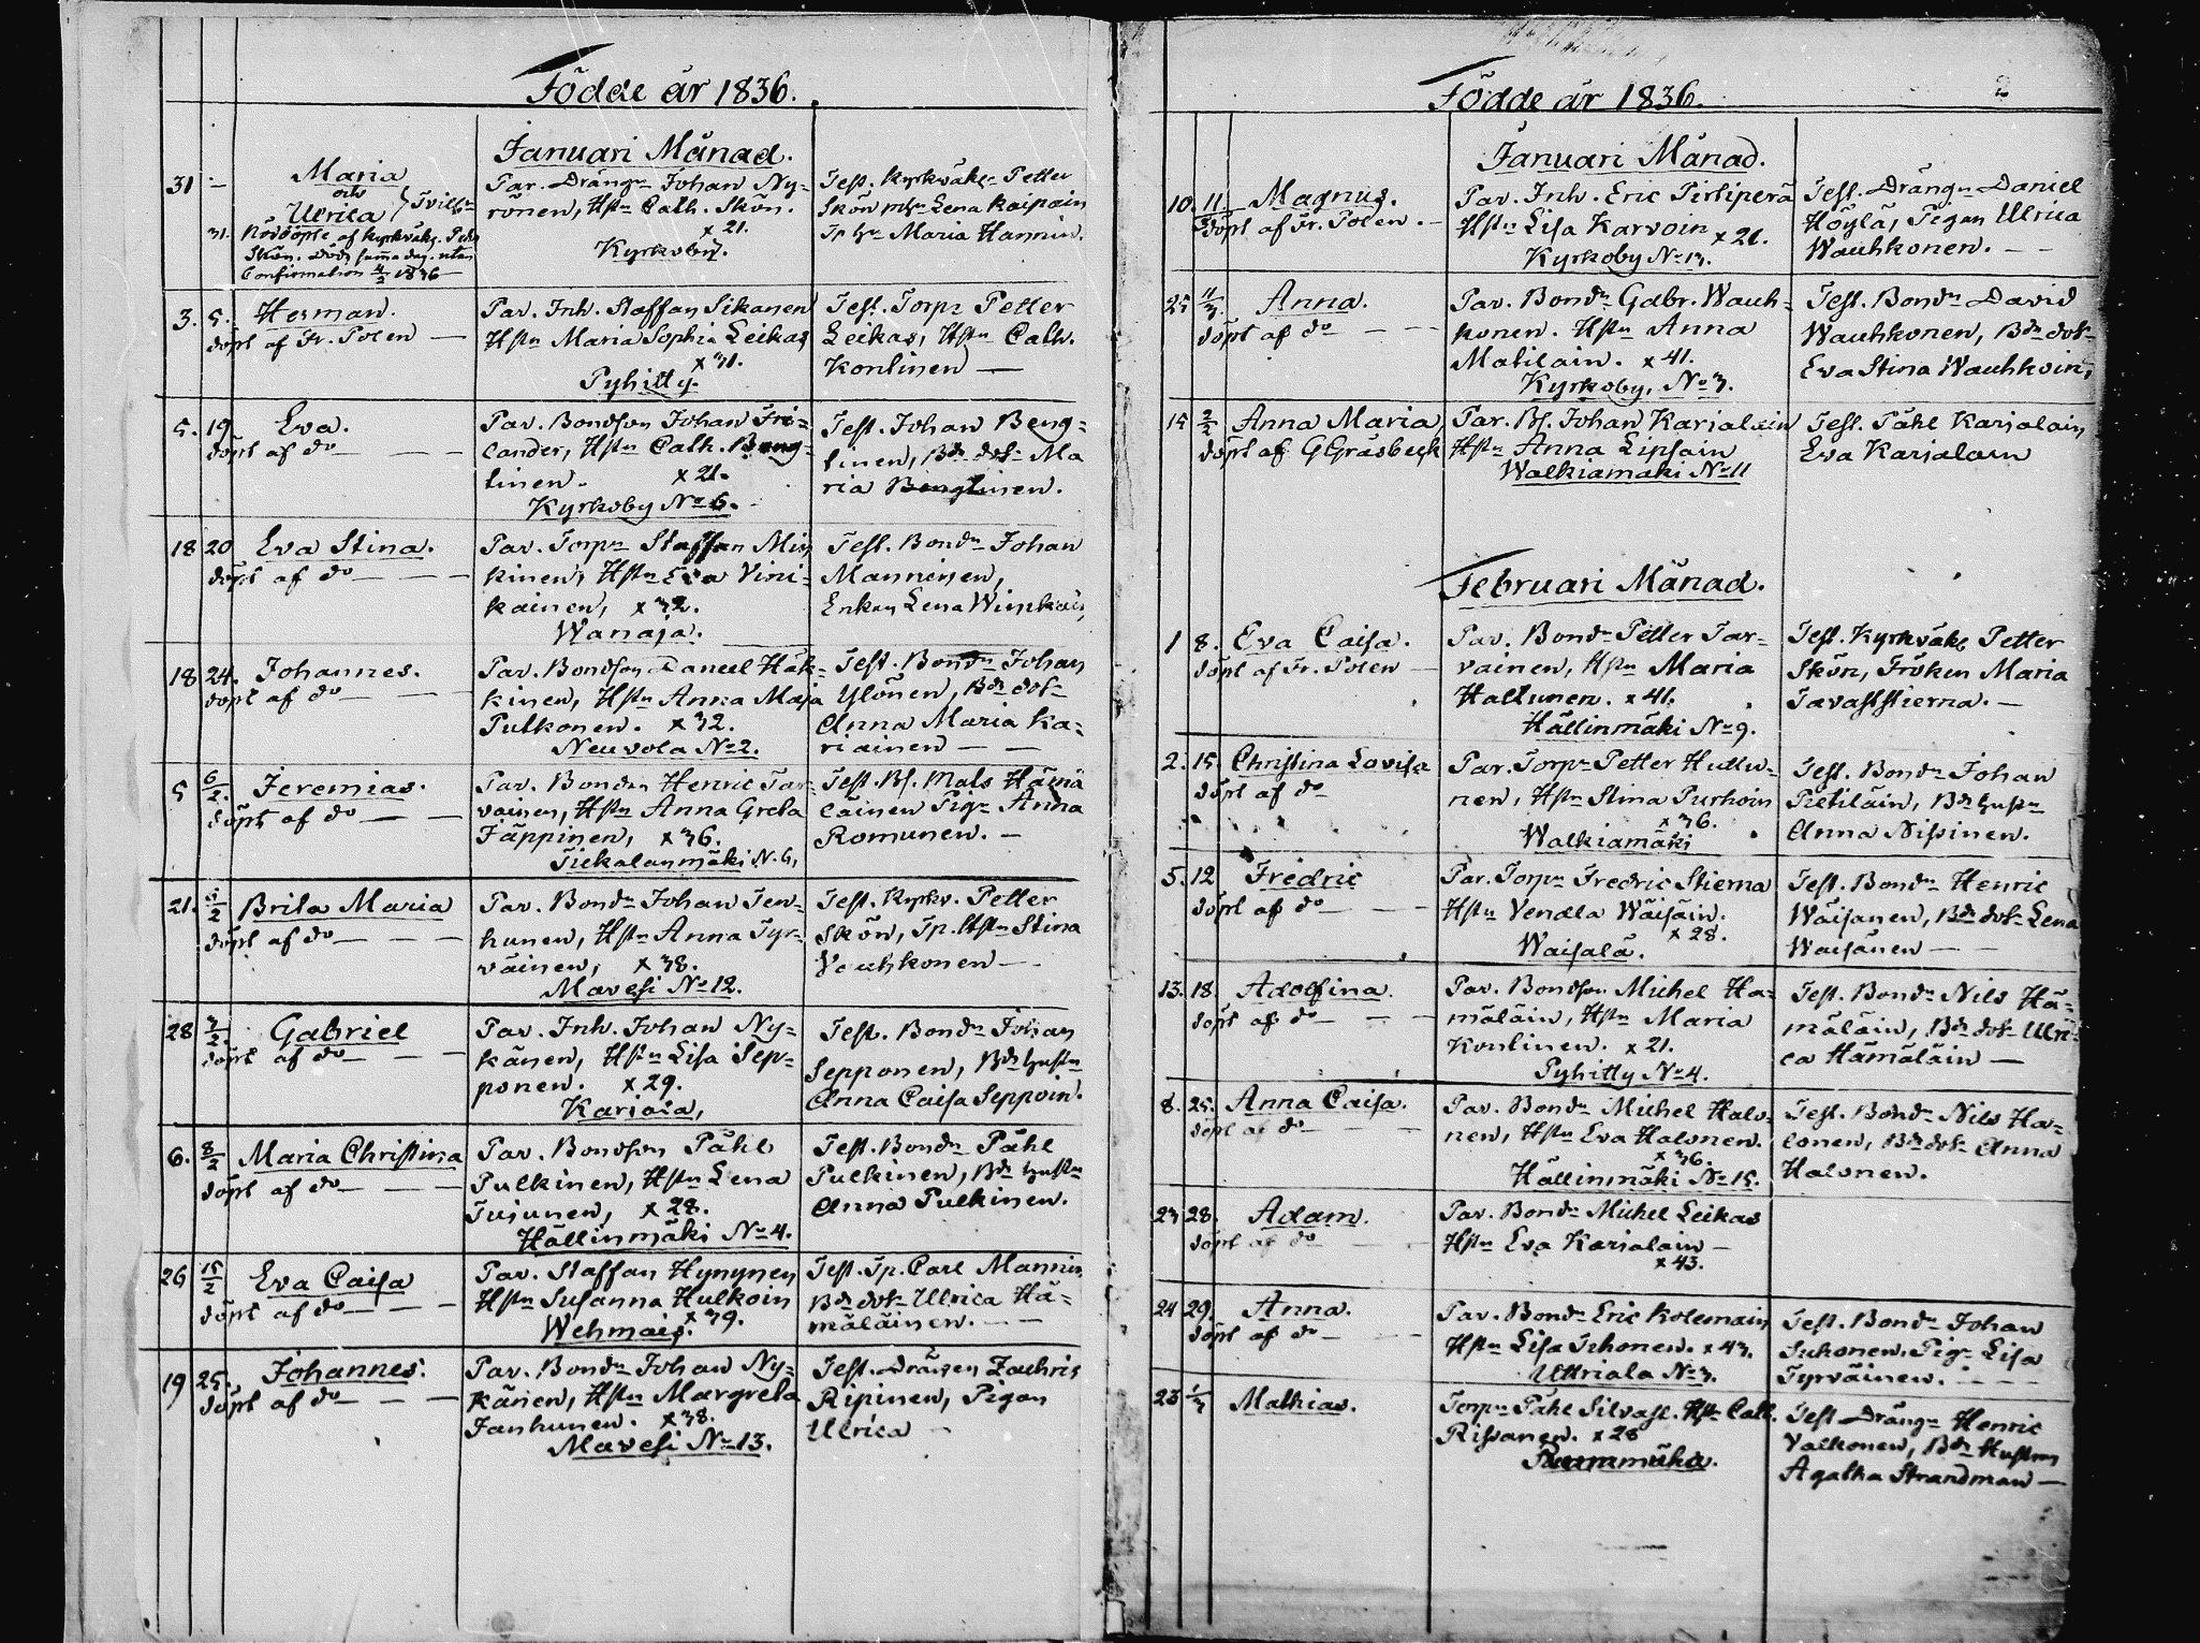 Födde år 1836.
Januari Månad.
31 — Maria
och
Ulrica
31. Nöddöpte af Kyrkväkt. Petter
Skön. Död samma dag. utan
Confirmation 4/2 1836 —
Par. Drängn Johan Ny-
rönen, Hstn Cath. Skön.
x 21.
Kyrkoby.
Test. Kyrkväkt. Petter
Skön Lena Kaipain
Maria Hannin.
3. 5. Herman.
döpt af Fr. Polen —
Par. Inh. Staffan Sikanen
Hstn Maria Sophia Leikas
x 31.
Pyhitty.
Test. Torpn Petter
Leikas, Hstn Cath.
Kontinen —
5. 19 Eva.
döpt af do — — —
Par. Bondson Johan Fri-
lander, Hstn Cath. Beng-
tinen. x 21.
Kyrkoby No 6.
Test. Johan Beng-
tinen, Bdn dotr Ma
ria Bengtinen.
18 20 Eva Stina.
döpt af do — — —
Par. Torpn Staffan Min
kinen, Hstn Eva Vini-
kainen, x 32.
Wanaja.
Test. Bondn Johan
Manninen,
Enkan Lena
18 24. Johannes.
döpt af do — —
Par. Bondson Daniel Häk-
kinen, Hstn Anna Maja
Pulkonen. x 32.
Neuvola No 2.
Test. Bondn Johan
Ylönen, Bdn dotr
Anna Maria Ka-
riainen — —
5 6/2. Jeremias.
döpt af do — —
Par. Bonden Henric Tar-
vainen, Hstn Anna Greta
Jäppinen, x 36.
Tiekalanmäki N. 6,
Test. Bs. Mats Hämä
läinen Pign Anna
Romunen. —
21. /2 Brita Maria
döpt af do — — —
Par. Bondn Johan Ten-
hunen, Hstn Anna Tyr-
väinen, x 38.
Mavesi No 12.
Test. Kyrkv. Petter
Skön, Tp. Hstn Stina
Vauhkonen —
28 3/2. Gabriel
döpt af do — —
Par. Inh. Johan Ny-
känen, Hstn Lisa Sep-
ponen. x 29.
Kariala,
Test. Bondn Johan
Sepponen, Bdn hustn
Anna Caisa Seppoin.
6. 8/2 Maria Christina
döpt af do — — —
Par. Bondson Påhl
Pulkinen, Hstn Lena
Tujunen, x 28.
Hällinmäki No 4.
Test. Bondn Påhl
Pulkinen, Bdn hustn
Anna Pulkinen.
26 15/2 Eva Caisa
döpt af do — — —
Par. Staffan Hynynen
Hstn Susanna Hulkoin
x 39.
Wehmais.
Test. Tp. Carl Mannin
Bdn dotr Ulrica Hä-
mäläinen. — —
19 25. Johannes.
döpt af do — — —
Par. Bondn Johan Ny-
känen, Hstn Margreta
Janhunen. x 38.
Mavesi No 13.
Test. Drängen Zachris
Ripinen, Pigan
Ulrica —
Födde år 1836.
2
Januari Månad.
10. 11. Magnus.
döpt af Fr. Polen. —
Par. Inh. Eric Pirtiperä
Hstn Lisa Karvoin x 21.
Kyrkoby No 13.
Test. Drängn Daniel
Höylä, Pigan Ulrica
Wauhkonen. — —
25 11/3 Anna.
döpt af do — —
Par. Bondn Gabr. Wauh-
konen. Hstn Anna
Matilain. x 41.
Kyrkoby, No 3.
Test. Bondn David
Wauhkonen, Bdn dotr
Eva Stina Wauhkoin,
15 2/2 Anna Maria
döpt af G Gråsbeck
Par. Bs. Johan Karialain
Hstn Anna Lipsain
Walkiamäki No 11
Test. Påhl Karialain
Eva Karialain
Februari Månad.
1 8. Eva Caisa.
döpt af Fr. Polen —
Par. Bondn Petter Tar-
vainen, Hstn Maria
Haltunen. x 41.
Hällinmäki No 9.
Test. Kyrkväkt Petter
Skön, Fröken Maria
Tavaststierna. —
2. 15. Christina Lovisa
döpt af do
Par. Torpn Petter Huttu-
nen, Hstn Stina Purhoin
x 36.
Walkiamäki
Test. Bondn Johan
Pietiläin, Bdn hustn
Anna Nissinen.
5. 12 Fredric
döpt af do — — —
Par. Torpn Fredric Stierna
Hstn Vendla Wäisäin.
x 28.
Waisalä.
Test. Bondn Henric
Wäisänen, Bdn dotr Lena
Waisänen — —
13. 18. Adolfina.
döpt af do — — —
Par. Bondson Michel Hä-
mäläin, Hstn Maria
Kontinen. x 21.
Pyhitty No 4.
Test. Bondn Nils Hä-
mäläin, Bdn dotr Ulri-
ca Hämäläin —
8. 25. Anna Caisa.
döpt af do — —
Par. Bondn Michel Halo-
nen, Hstn Eva Halonen.
x 36.
Hällinmäki No 15.
Test. Bondn Nils Ha-
lonen, Bdn dotr Anna
Halonen.
23 28. Adam.
döpt af do — —
Par. Bondn Michel Leikas
Hstn Eva Karialain —
x 43.
24 29. Anna.
döpt af do — — —
Par. Bondn Eric Kolemain
Hstn Lisa Tuhonen. x 43.
Uttriala No 3.
Test. Bondn Johan
Tuhonen. Pign Lisa
Tyrväinen. — — —
23 1/3 Mathias.
Torpn Påhl Silvast. Hstn Cath.
Rissanen. x 28
Test Drängn Henric
Valkonen, Bdn Hustrun
Agatha Strandman —